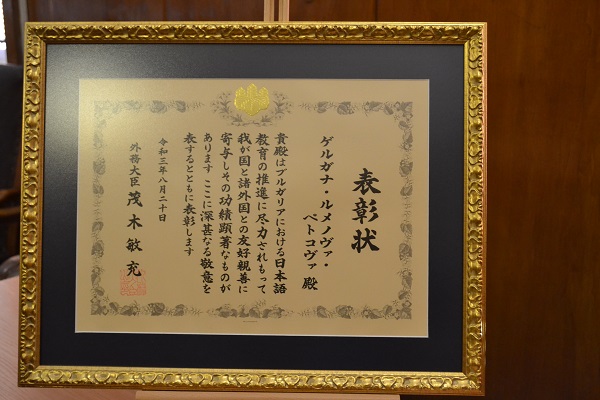 表彰状
ゲルガナ・ルメノヴァ・
ペトコヴァ 殿
貴殿はブルガリアにおける日本語
教育の推進に尽力されもって
我が国と諸外国との友好親善に
寄与しその功績顕著なものが
あります ここに深甚なる敬意を
表するとともに表彰します
令和三年八月二十日
外務大臣 茂木敏充